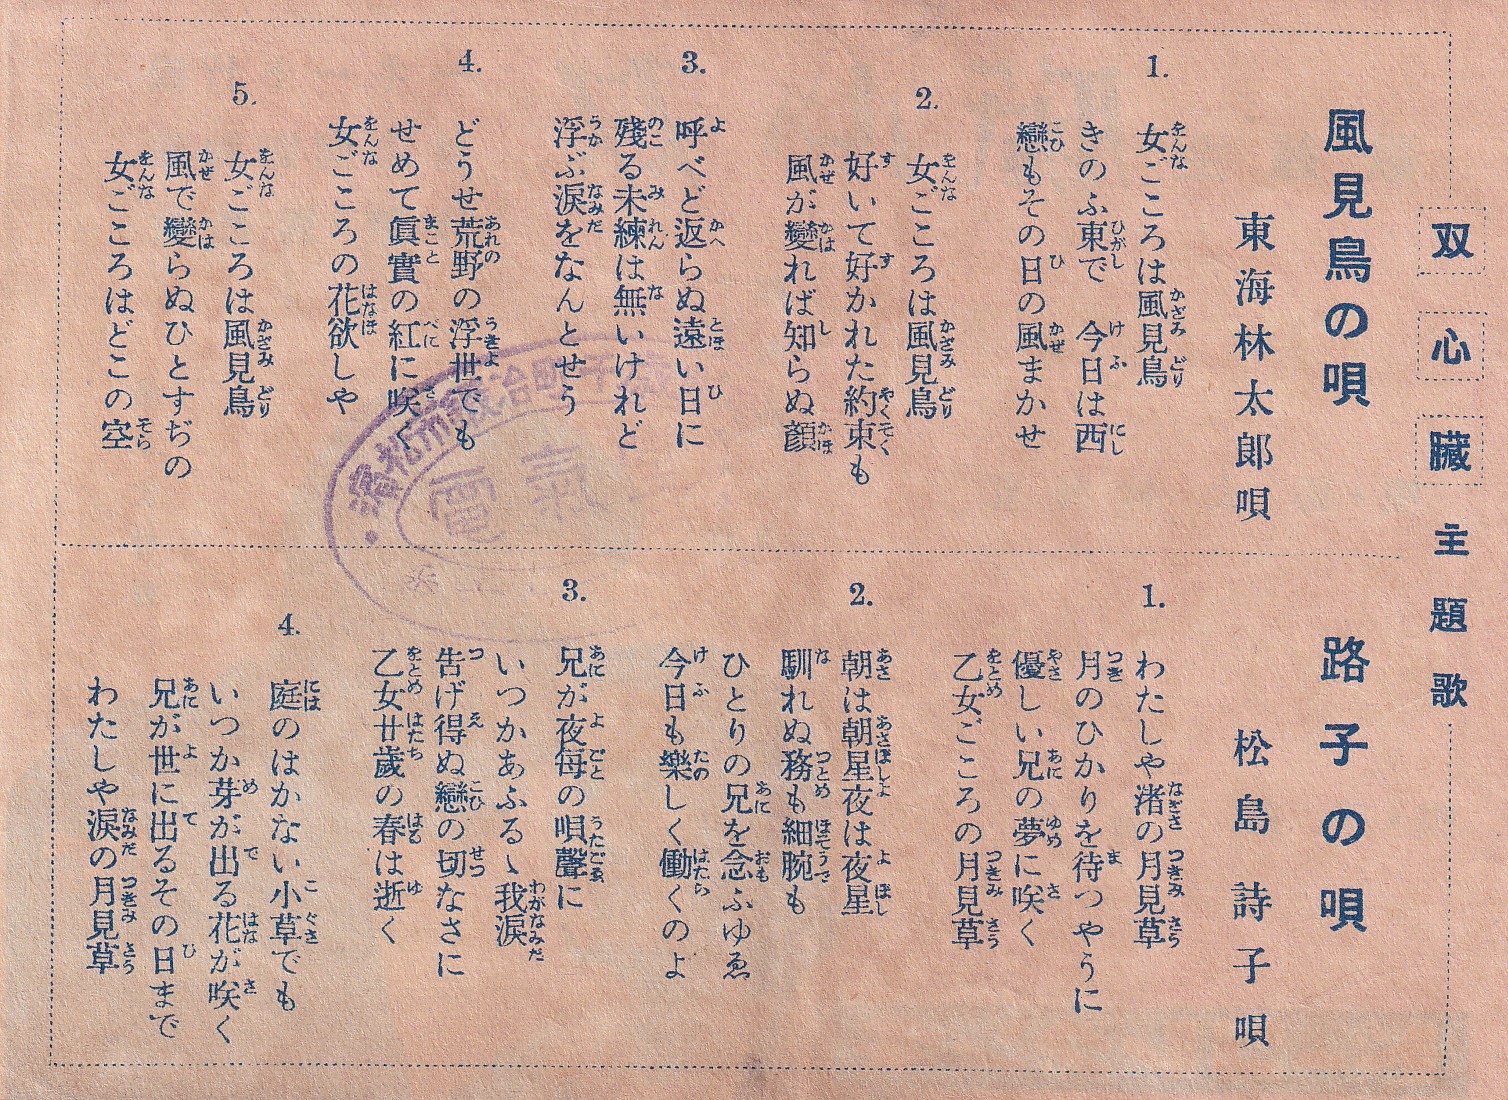 双心臓主題歌
風見鳥の唄
東海林太郎唄
1.
女ごころは風見鳥
きのふ東で 今日は西
戀もその日の風まかせ
2.
女ごころは風見鳥
好いて好かれた約束も
風が變れば知らぬ顔
3.
呼べど返らぬ遠い日に
殘る未練は無いけれど
浮ぶ涙をなんとせう
4.
どうせ荒野の浮世でも
せめて眞實の紅に咲く
女ごころの花欲しや
5.
女ごころは風見鳥
風で變らぬひとすぢの
女ごころはどこの空
路子の唄
松島詩子唄
1.
わたしや渚の月見草
月のひかりを待つやうに
優しい兄の夢に咲く
乙女ごころの月見草
2.
朝は朝星夜は夜星
馴れぬ務も細腕も
ひとりの兄を念ふゆゑ
今日も樂しく働くのよ
3.
兄が夜毎の唄聲に
いつかあふるゝ我涙
告げ得ぬ戀の切なさに
乙女廿歳の春は逝く
4.
庭のはかない小草でも
いつか芽が出る花が咲く
兄が世に出るその日まで
わたしや涙の月見草
濱松市鍛冶町
電氣